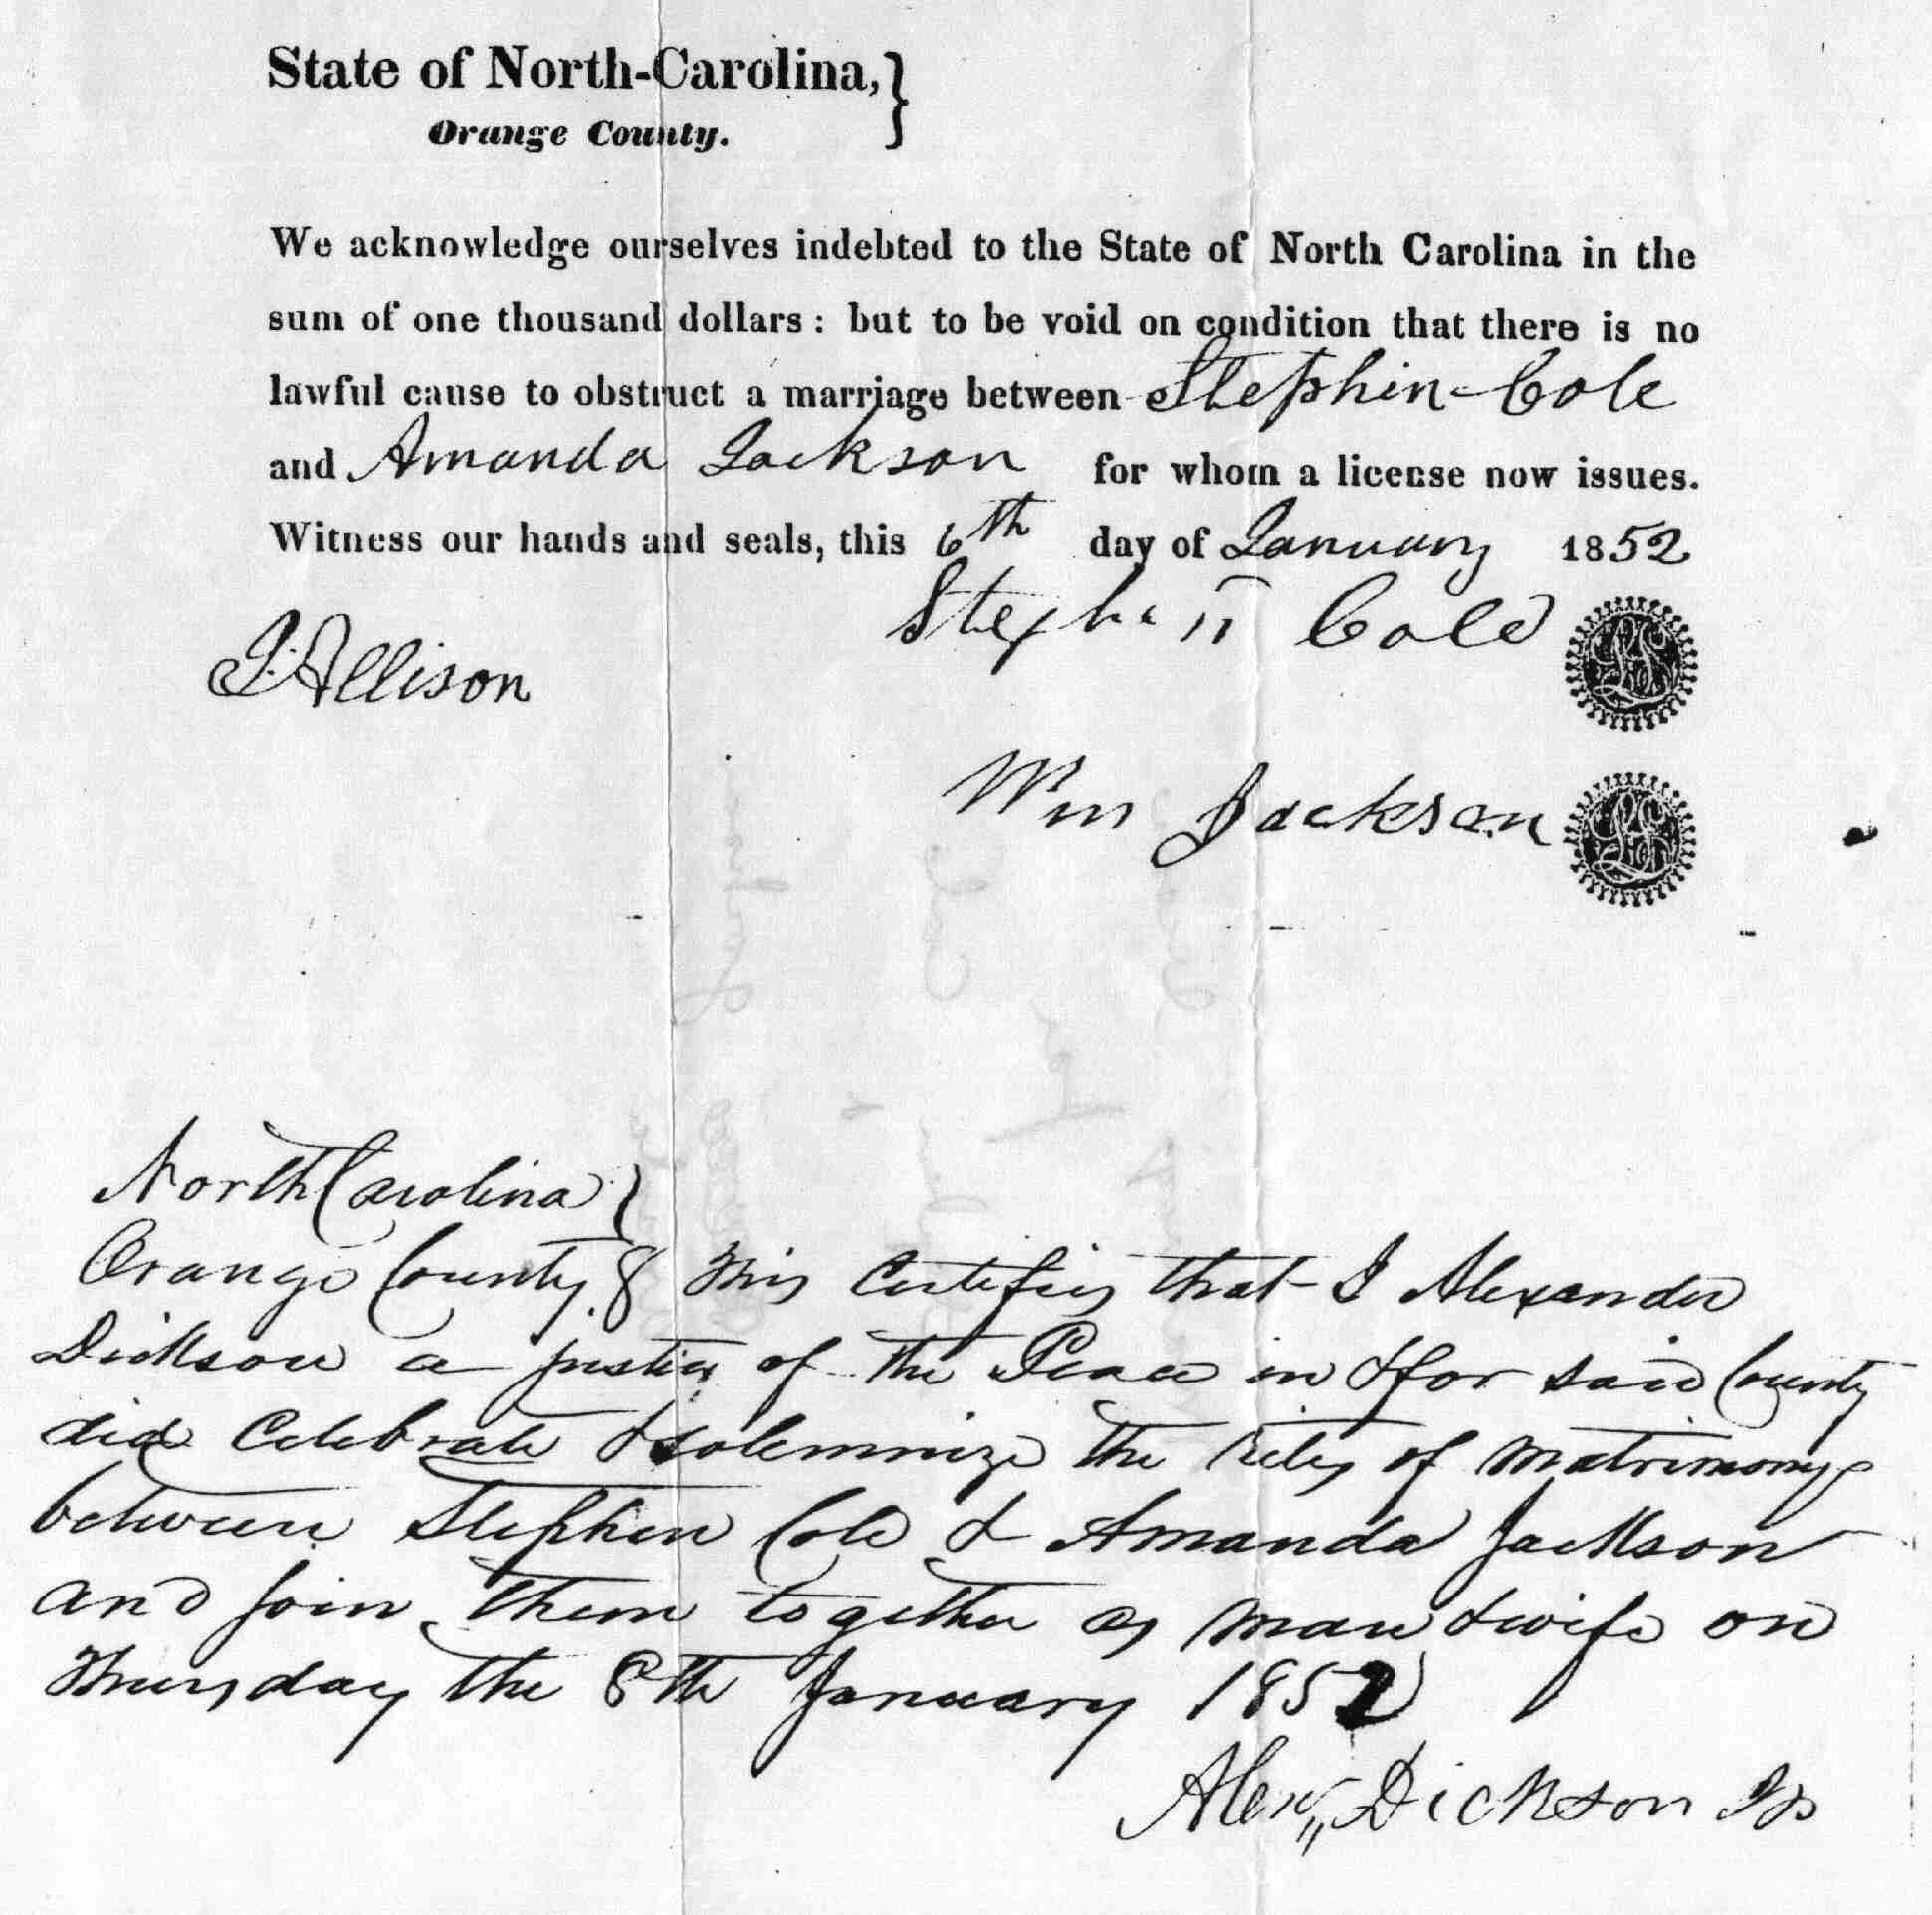 State of North-Carolina, }
Orange County.
We acknowledge ourselves indebted to the State of North Carolina in the
sum of one thousand dollars: but to be void on condition that there is no
lawful cause to obstruct a marriage between Stephin Cole
and Amanda Jackson for whom a license now issues.
Witness our hands and seals, this 6th day of January 1852
Stephen Cole
J. Allison
Wm Jackson
North Carolina }
Orange County. } This Certifies that I Alexander
Dickson a justice of the Peace in & for said County
did Celebrate & solemnize the Rites of Matrimony
between Stephen Cole & Amanda Jackson
and join them together as man & wife on
Thursday the 8th January 1852
Alex,, Dickson JP